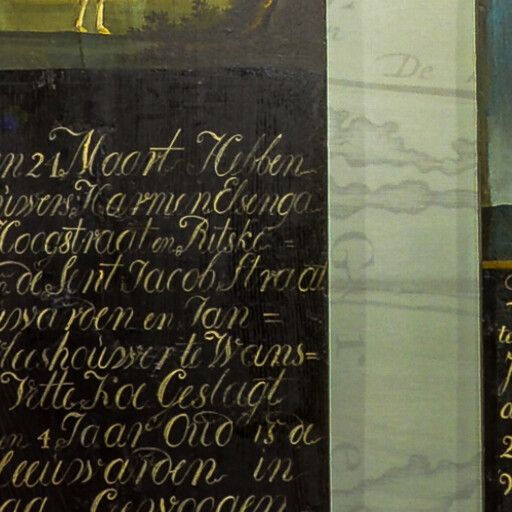 n 21 Maart Hebben
uwers Harmen Elsenga
Hoogstraat en Ritske =
n de Sent Jacob Straat
uwarden en Jan =
leeshouwer te Wans=
Vette Koe Geslagt
en 4 Jaar Oud is de
Leeuwarden in
aag Gewoogen
De